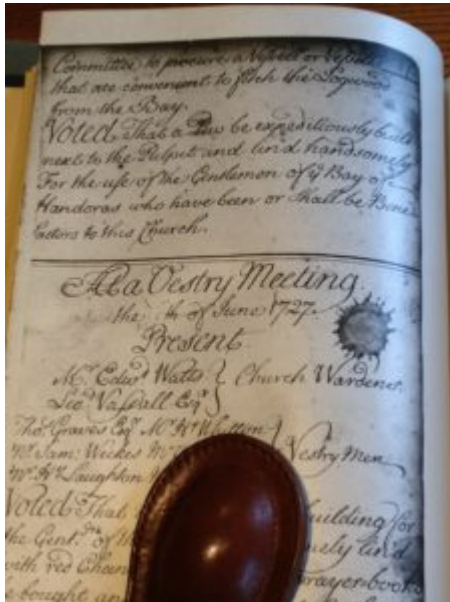 Committee to procure a Vessell or Vessells
that are convenient to fetch the Logwood
from the Bay.
Voted That a Pew be expeditiously built
next to the Pulpit and lin'd handsomely
For the use of the Gentlemen of yᵉ Bay of
Handoras who have been or Shall be Bene
factors to this Church.
At a Vestry Meeting
the th of June 1727.
Present
Mʳ. Edwᵈ Watts } Church Wardens.
Leoᵈ Vassall Esqʳ }
Thoˢ. Graves Esqʳ Mʳ Wᵐ
Mʳ. Sam: Weekes Mʳ } Vestry Men
Mʳ. Wᵐ Laughton
Voted That building for
the Gentⁿ of nely lin'd
with red prayer-books
be bought an